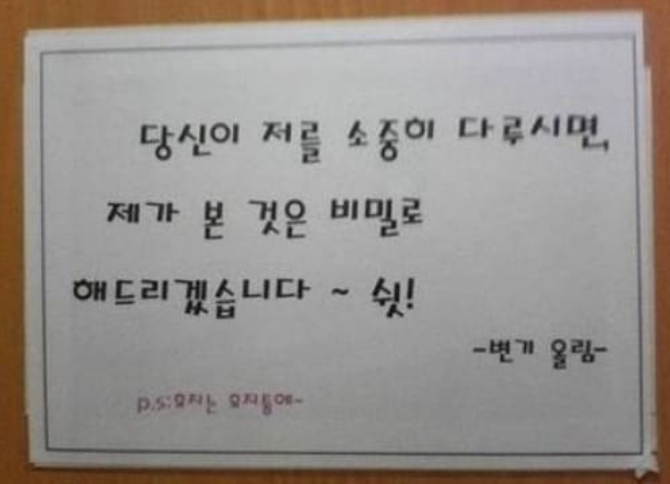 당신이 저를 소중히 다루시면,
제가 본 것은 비밀로
해드리겠습니다 ~ 쉿!
-변기 올림-
p.s:휴지는 휴지통에-